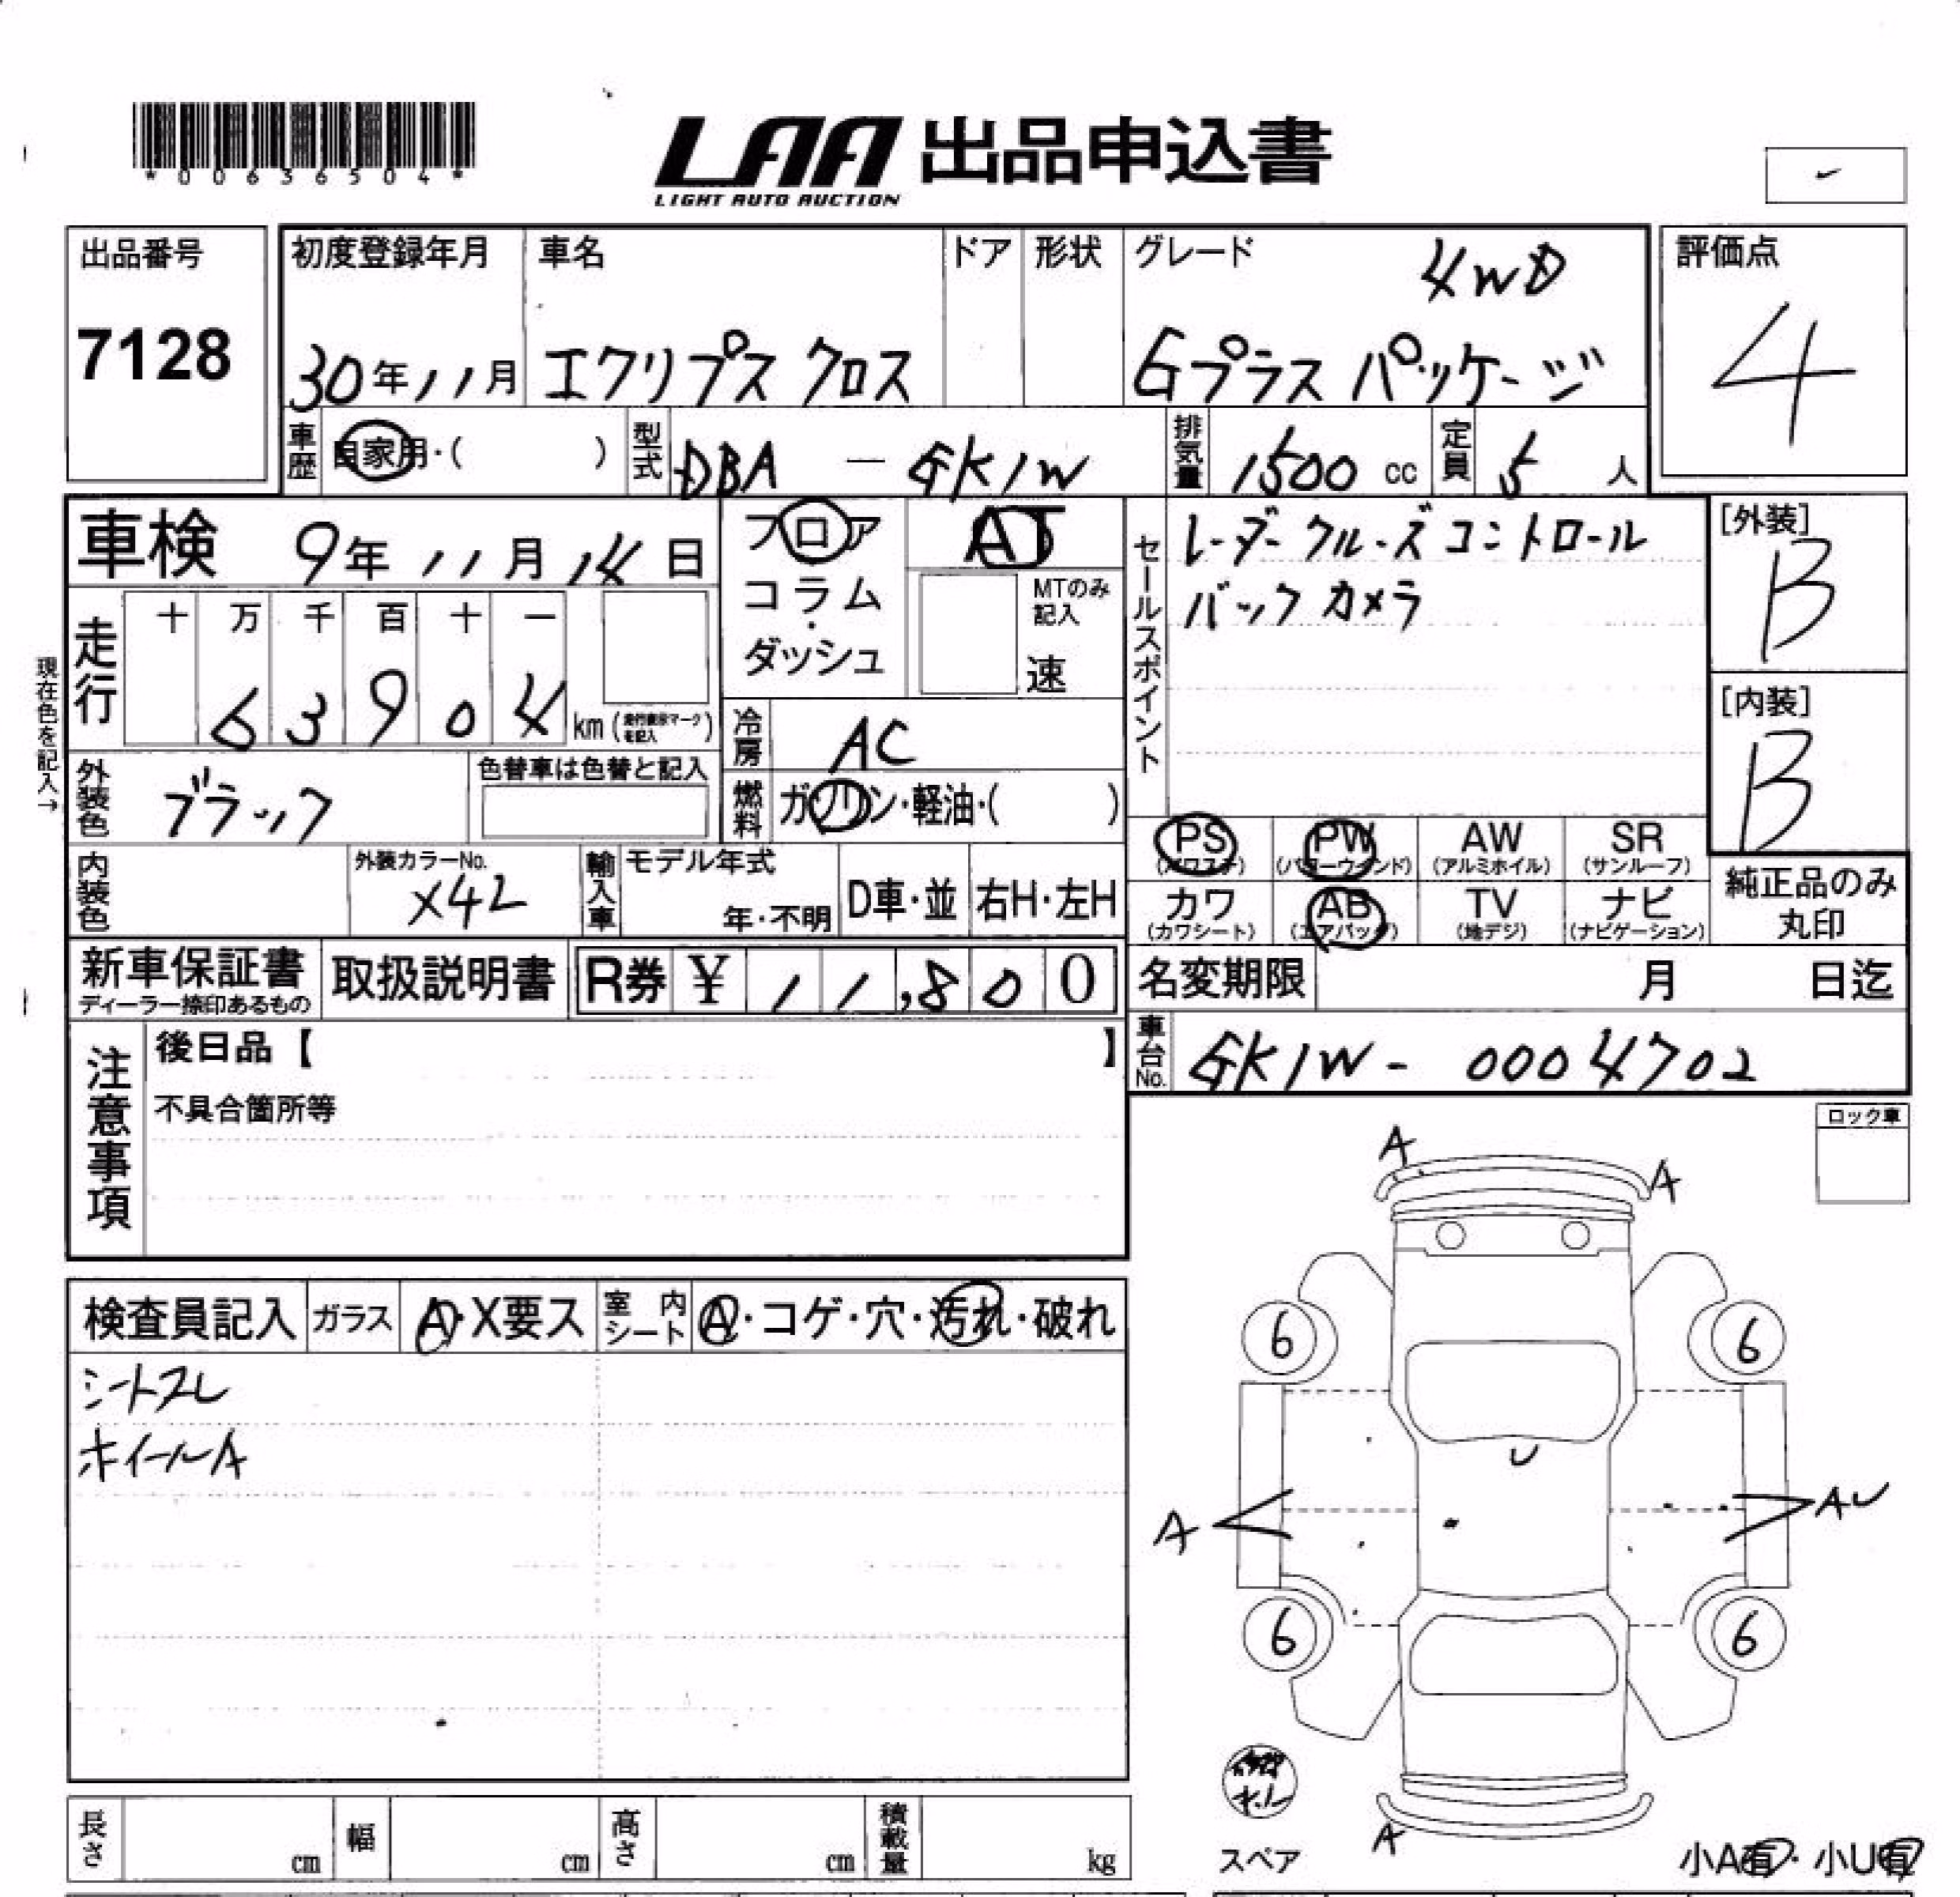 *00636504*
LAA 出品申込書
LIGHT AUTO AUCTION
出品番号
7128
初度登録年月
30年11月
車名
エクリプス クロス
ドア
形状
グレード
4WD
Gプラス パッケージ
評価点
4
車歴
自家用・( )
型式
DBA - GK1W
排気量
1500 cc
定員
5 人
車検 9年 11月 14日
フロア
コラム
・
ダッシュ
AT
MTのみ
記入
速
セールスポイント
レーダークルーズコントロール
バックカメラ
[外装]
B
[内装]
B
現在色を記入→
走行
十 万 千 百 十 一
6 3 9 0 4
km (走行表示マークを記入)
冷房
AC
外装色
ブラック
色替車は色替と記入
燃料
ガソリン・軽油・( )
PS
(パワステ)
PW
(パワーウインド)
AW
(アルミホイル)
SR
(サンルーフ)
カワ
(カワシート)
AB
(エアバッグ)
TV
(地デジ)
ナビ
(ナビゲーション)
純正品のみ
丸印
内装色
外装カラーNo.
X42
輸入車
モデル年式
年・不明
D車・並
右H・左H
新車保証書
ディーラー捺印あるもの
取扱説明書
R券 ¥ 11,800
名変期限
月 日迄
車台No.
GK1W- 0004702
注意事項
後日品【 】
不具合箇所等
ロック車
A
A
検査員記入
ガラス
A・X要ス
室内シート
A・コゲ・穴・汚れ・破れ
シートスレ
ホイールA
6
6
U
A
AU
6
6
A
スペア
小A有・小U有
長さ
cm
幅
cm
高さ
cm
積載量
kg